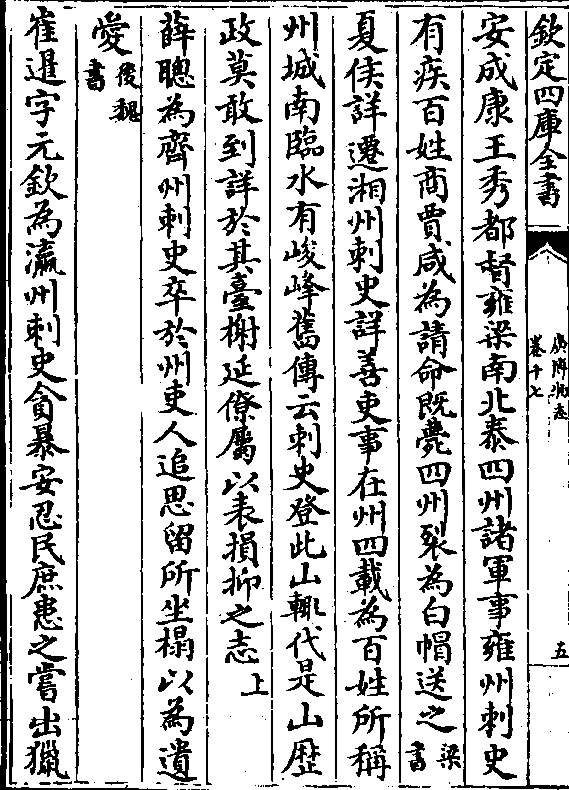 欽定四庫全書
廣博物志
卷十七
五
安成康王秀都督雍梁南北泰四州諸軍事雍州刺史
有疾百姓商賈咸為請命既薨四州裂為白帽送之梁書
夏侯詳遷湘州刺史詳善吏事在州四載為百姓所稱
州城南臨水有峻峰舊傳云刺史登此山輒代是山歴
政莫敢到詳於其臺榭延僚屬以表損抑之志上
薛聰為齊州刺史卒於州吏人追思留所坐榻以為遺
愛後魏書
崔暹字元欽為瀛州刺史貪暴安忍民庶患之嘗出獵